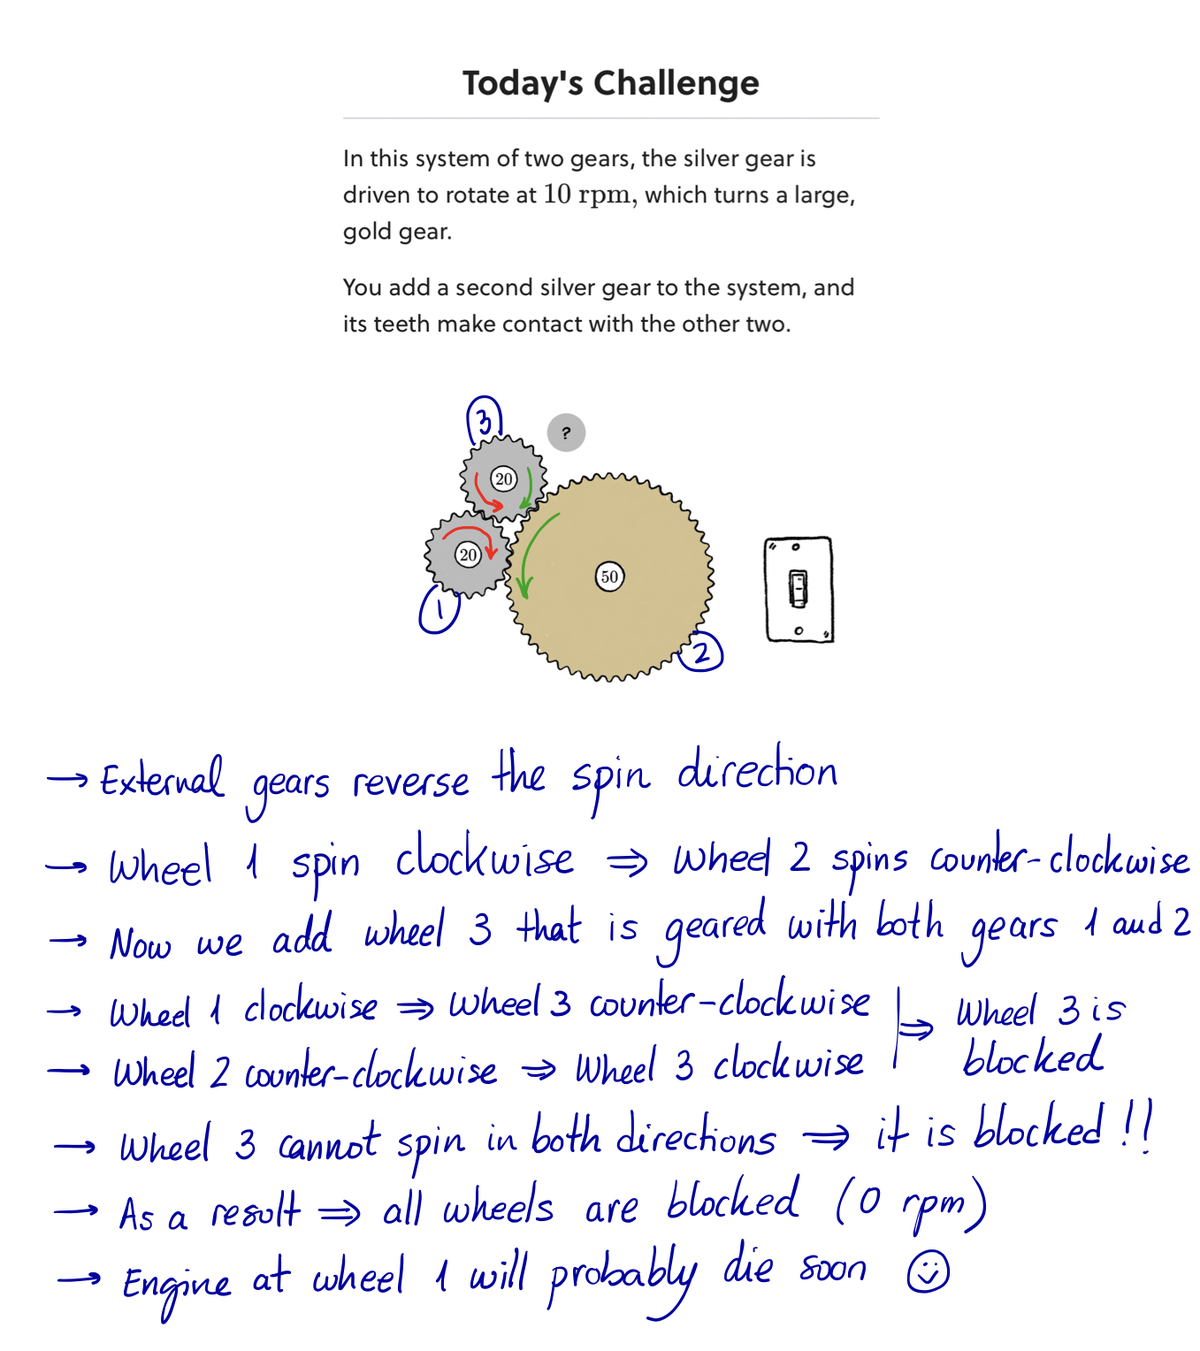 Today's Challenge
In this system of two gears, the silver gear is
driven to rotate at 10 rpm, which turns a large,
gold gear.
You add a second silver gear to the system, and
its teeth make contact with the other two.
3
?
20
20
50
1
2
→ External gears reverse the spin direction
→ Wheel 1 spin clockwise ⇒ Wheel 2 spins counter-clockwise
→ Now we add wheel 3 that is geared with both gears 1 and 2
→ Wheel 1 clockwise ⇒ Wheel 3 counter-clockwise | ⇒ Wheel 3 is
→ Wheel 2 counter-clockwise ⇒ Wheel 3 clockwise | blocked
→ Wheel 3 cannot spin in both directions ⇒ it is blocked !!
→ As a result ⇒ all wheels are blocked (0 rpm)
→ Engine at wheel 1 will probably die soon ☺